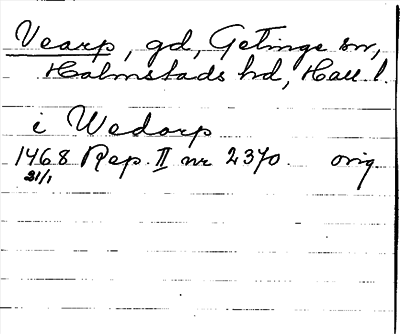 Vearp, gd, Getinge sn,
Halmstads hd, Hall l.
i Wedorp
1468 Rep. II nr 2370. orig
31/1